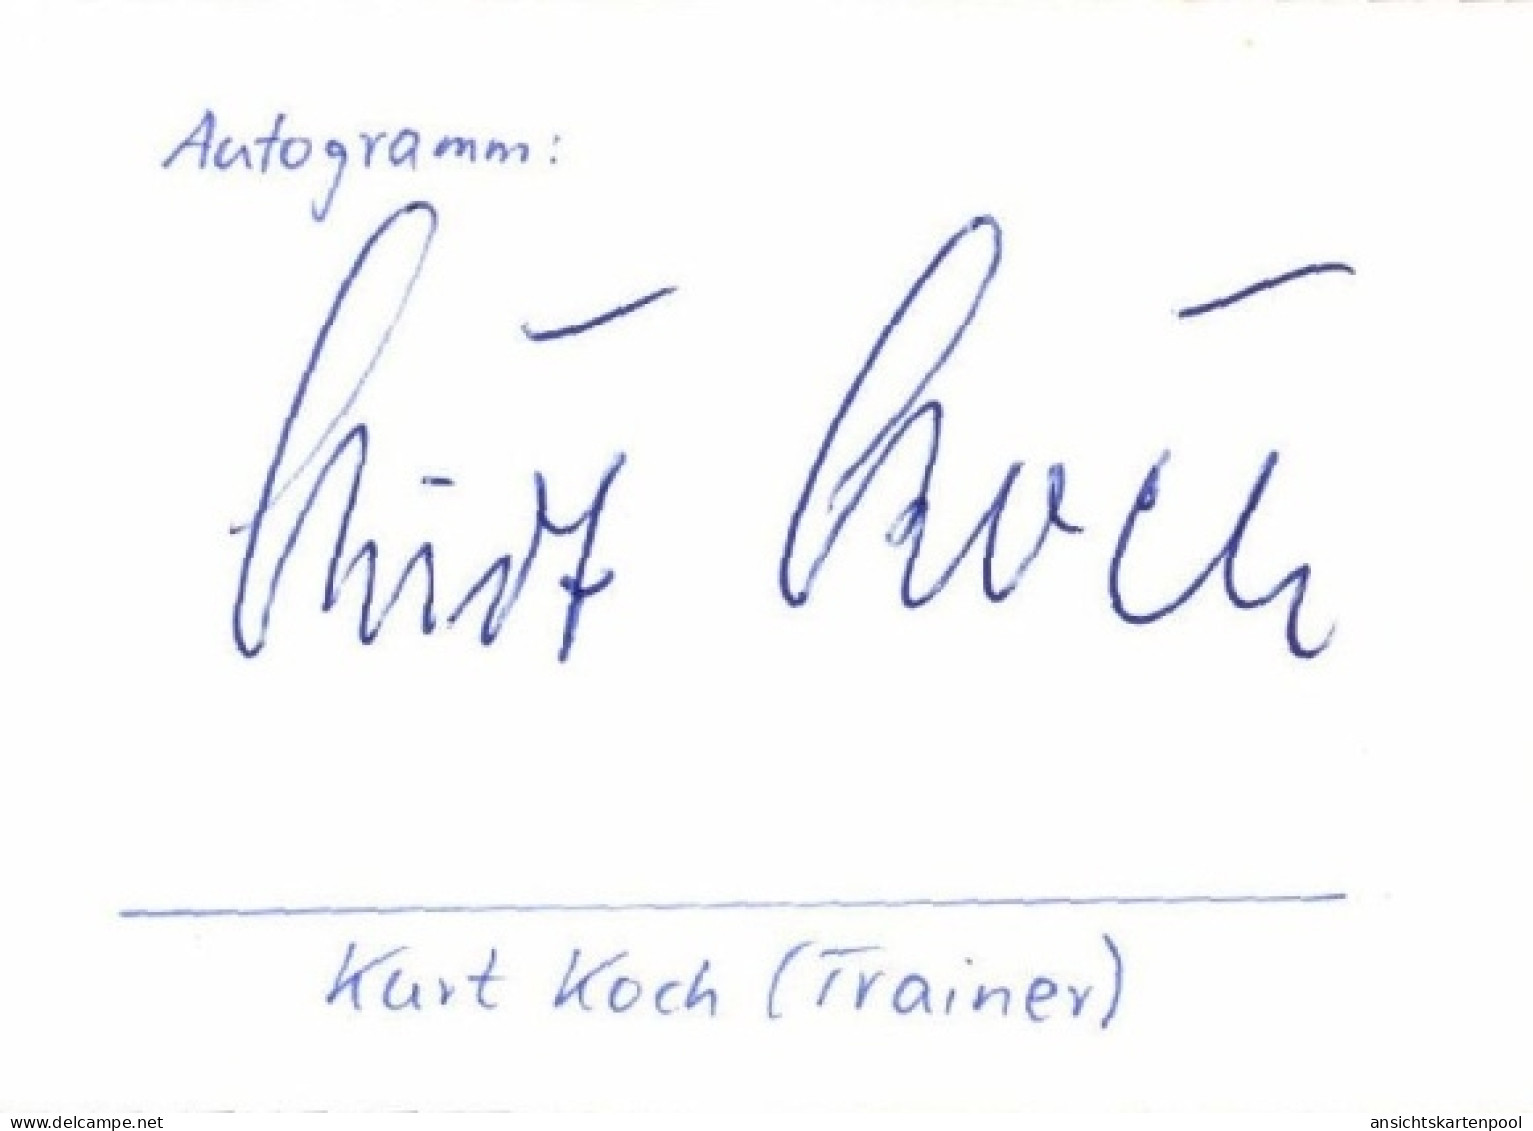 Autogramm:
Kurt Koch
Kurt Koch (Trainer)
www.delcampe.net
ansichtskartenpool